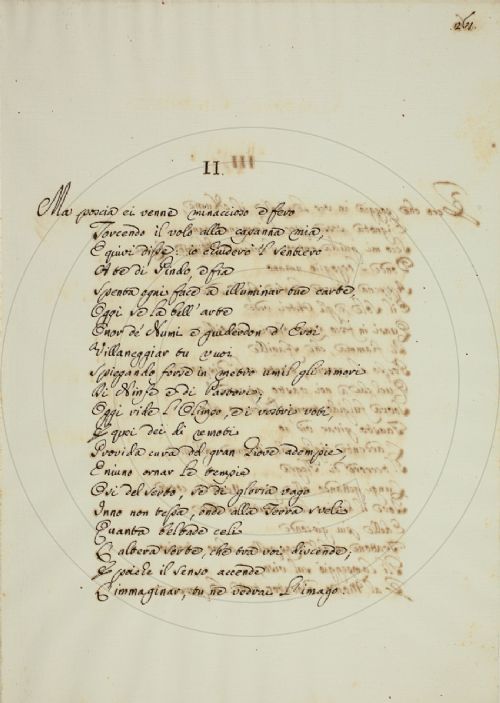 261.
II.
Ma poscia ei venne minaccioso e fero
Torcendo il volo alla capanna mia,
E quivi disse: io chiudero 'l sentiero
A te di Pindo, e fia
Spenta ogni face a illuminar tue carte,
Oggi se la bell' arte
Onor de' Numi e guiderdon d' Eroi
Villaneggiar tu vuoi
Spiegando forse in metro umil gli amori
Di Ninfe e di Pastori;
Oggi vile l' Olimpo, e i vostri voti
E quei dei di remoti
Provida cura del gran Giove adempie,
E niuno ornar le tempie
Osi del serto, se di gloria vago
Inno non tessa, onde alla Terra sveli
Quanta beltade celi
L' altera serte, che tra voi discende,
E poiche il senso accende
L' immaginar, tu ne vedrai l' imago